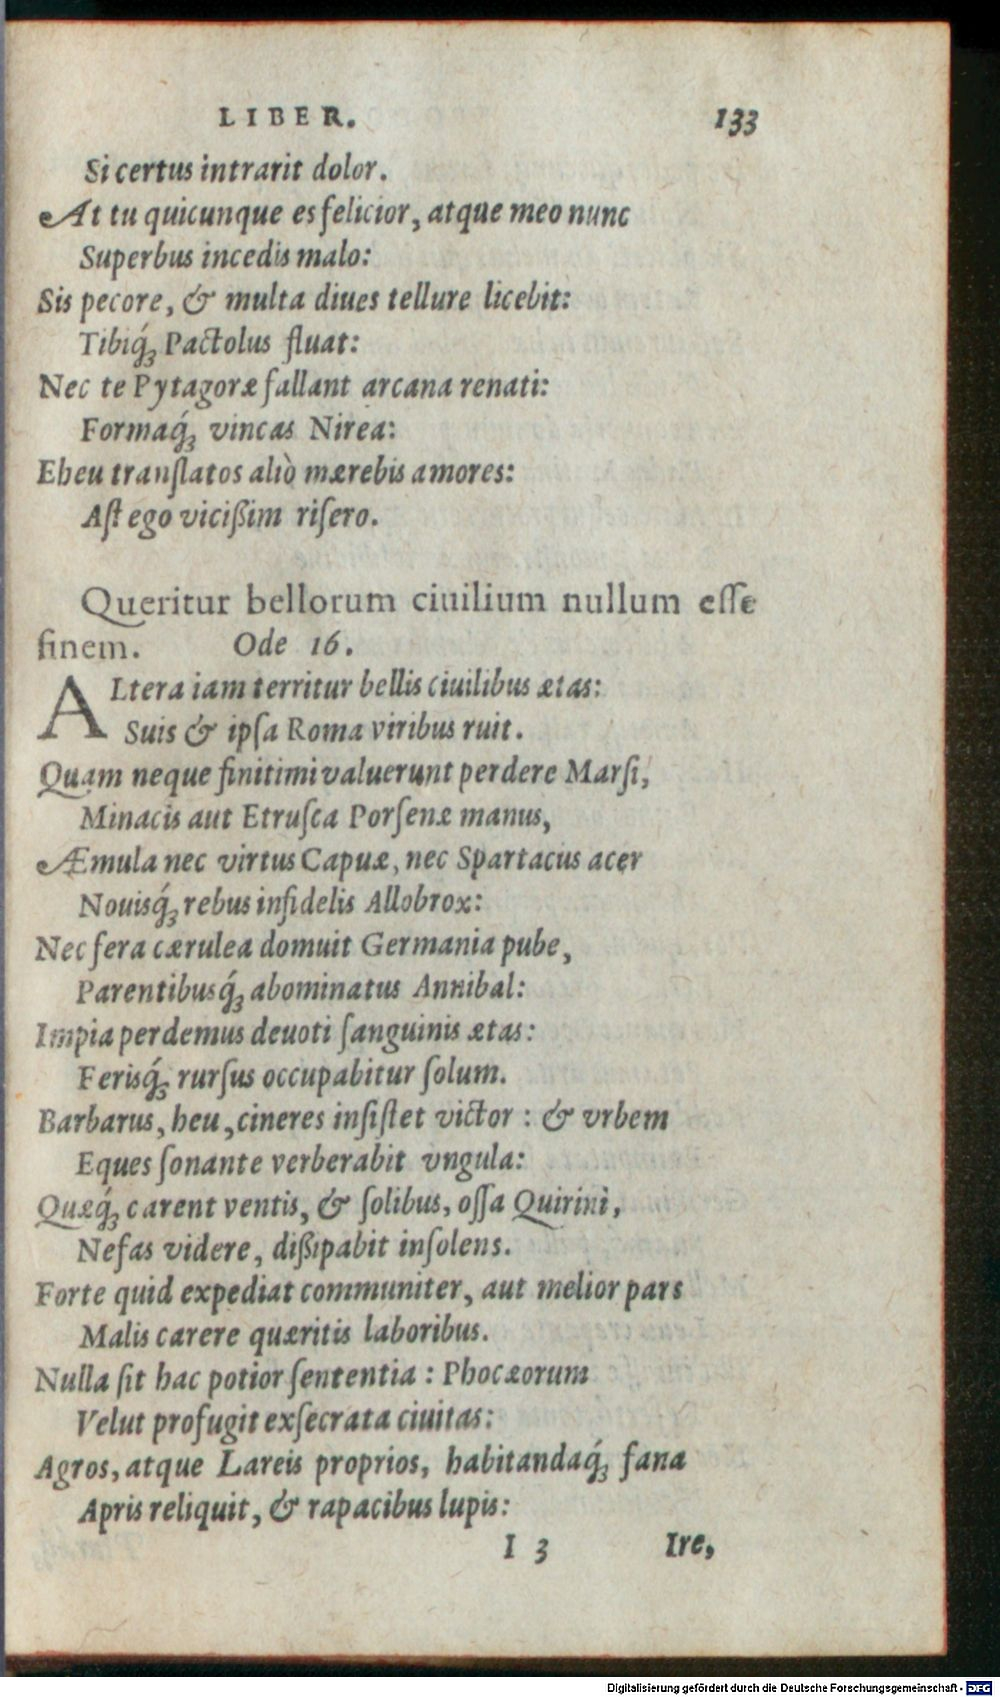 LIBER. 133
Si certus intrarit dolor.
At tu quicunque es felicior, atque meo nunc
Superbus incedis malo:
Sis pecore, & multa diues tellure licebit:
Tibiq́ꝫ Pactolus fluat:
Nec te Pytagoræ fallant arcana renati:
Formaq́ꝫ vincas Nirea:
Eheu tranſlatos aliò mærebis amores:
Aſt ego vicißim riſero.
Queritur bellorum ciuilium nullum eſſe
finem. Ode 16.
ALtera iam territur bellis ciuilibus ætas:
Suis & ipſa Roma viribus ruit.
Quam neque finitimi valuerunt perdere Marſi,
Minacis aut Etruſca Porſenæ manus,
Æmula nec virtus Capuæ, nec Spartacus acer
Nouisq́ꝫ rebus infidelis Allobrox:
Nec fera cærulea domuit Germania pube,
Parentibusq́ꝫ abominatus Annibal:
Impia perdemus deuoti ſanguinis ætas:
Ferisq́ꝫ rurſus occupabitur ſolum.
Barbarus, heu, cineres inſiſtet victor : & vrbem
Eques ſonante verberabit vngula:
Quæq́ꝫ carent ventis, & ſolibus, oſſa Quirini,
Nefas videre, dißipabit inſolens.
Forte quid expediat communiter, aut melior pars
Malis carere quæritis laboribus.
Nulla ſit hac potior ſententia : Phocæorum
Velut profugit exſecrata ciuitas:
Agros, atque Lareis proprios, habitandaq́ꝫ fana
Apris reliquit, & rapacibus lupis:
I 3 Ire,
Digitalisierung gefördert durch die Deutsche Forschungsgemeinschaft - DFG